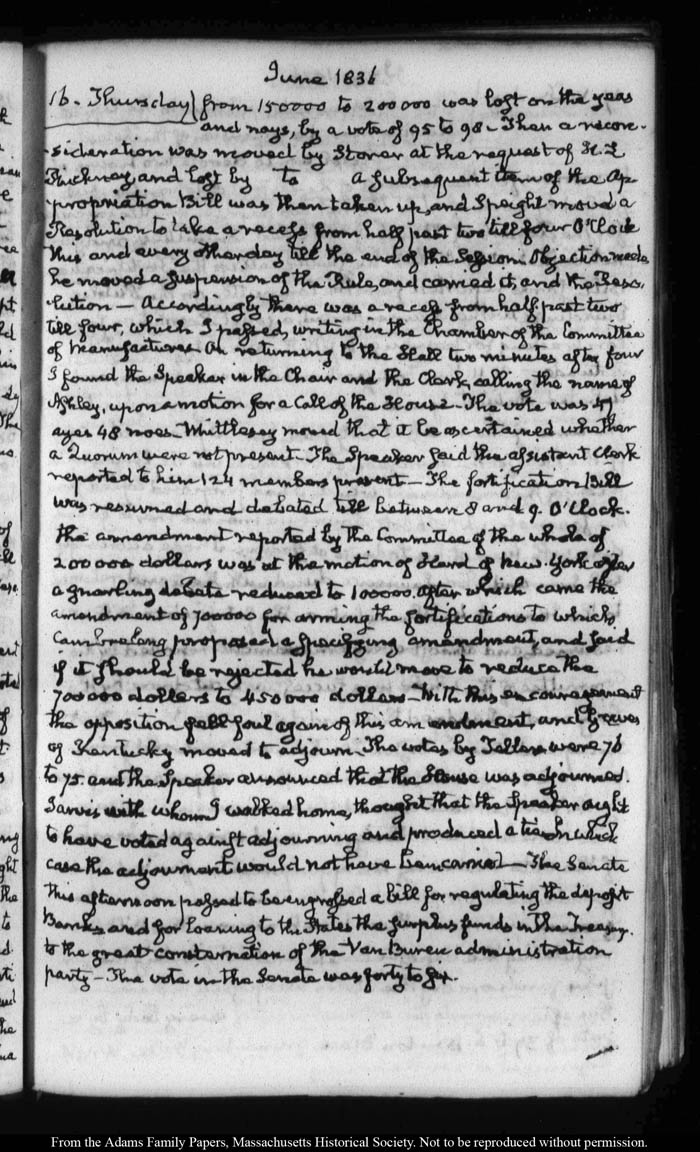 June 1836
16. Thursday) from 150000 to 200000 was lost on the yeas
and nays, by a vote of 95 to 98. Then a recon-
-sideration was moved by Storer at the request of H. L
Pinckney, and lost by to a subsequent item of the Ap-
propriation Bill was then taken up, and Speight moved a
Resolution to take a recess from half past two till four O'Clock
this and every other day till the end of the Session. Objection made
he moved a suspension of the Rule, and carried it, and the Reso-
lution — Accordingly there was a recess from half past two
till four, which I passed, writing in the Chamber of the Committee
of Manufactures. On returning to the Hall two minutes after four
I found the Speaker in the Chair and the Clerk, calling the name of
Ashley, upon a motion for a Call of the House — The vote was 47
ayes 48 noes. Whittlesey moved that it be ascertained whether
a Quorum were not present — The Speaker said the assistant Clerk
reported to him 124 members present — The fortification Bill
was resumed and debated till between 8 and 9. O'Clock.
the amendment reported by the Committee of the whole of
200000 dollars was at the motion of Hard of New-York after
a gnarling debate reduced to 100000. after which came the
amendment of 700000 for arming the fortifications to which,
Cambreleng proposed a specifying amendment, and said
if it should be rejected he would move to reduce the
700000 dollars to 450000 dollars — With this encouragement
the opposition fell foul again of this amendment, and Graves
of Kentucky moved to adjourn. The votes by Tellers were 76
to 75. and the Speaker announced that the House was adjourned.
Jarvis with whom I walked home, thought that the Speaker ought
to have voted against adjourning and produced a tie in which
case the adjournment would not have been carried — The Senate
this afternoon passed to be engrossed a bill for regulating the deposit
Banks and for loaning to the States the surplus funds in the Treasury.
to the great consternation of the Van Buren administration
party — The vote in the Senate was forty to six.
From the Adams Family Papers, Massachusetts Historical Society. Not to be reproduced without permission.